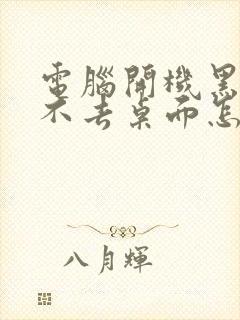 電腦開機黑
不去桌面怎
八月輝